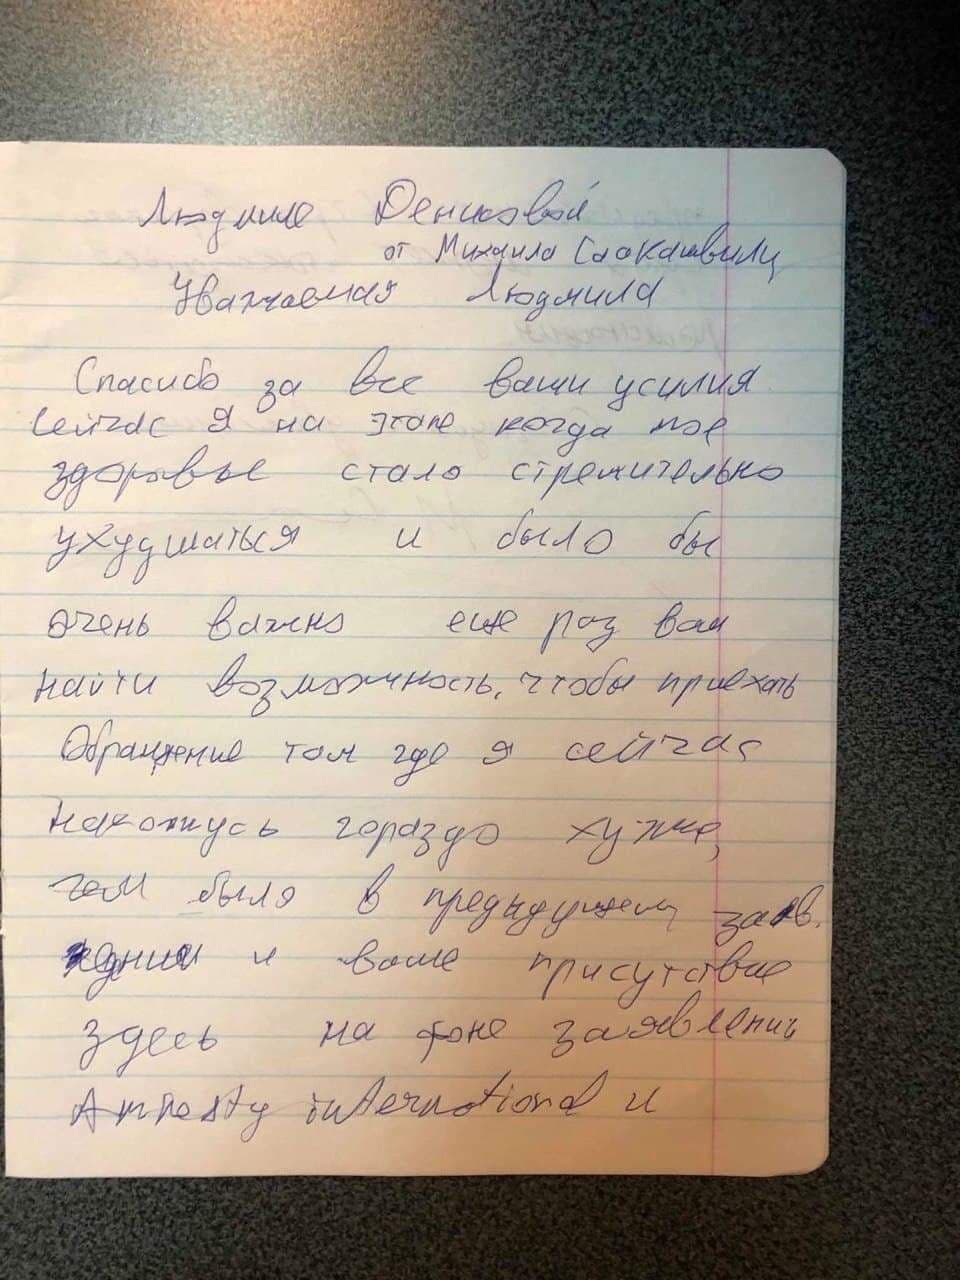 Людмиле Денисовой
от Михаила Саакашвили
Уважаемая Людмила
Спасибо за все ваши усилия
сейчас я на этапе когда мое
здоровье стало стремительно
ухудшаться и было бы
очень важно еще раз вам
найти возможность, чтобы приехать
Обращение там где я сейчас
нахожусь гораздо хуже,
чем было в предыдущем
и ваше присутствие
здесь на фоне заявлений
Amnesty international и